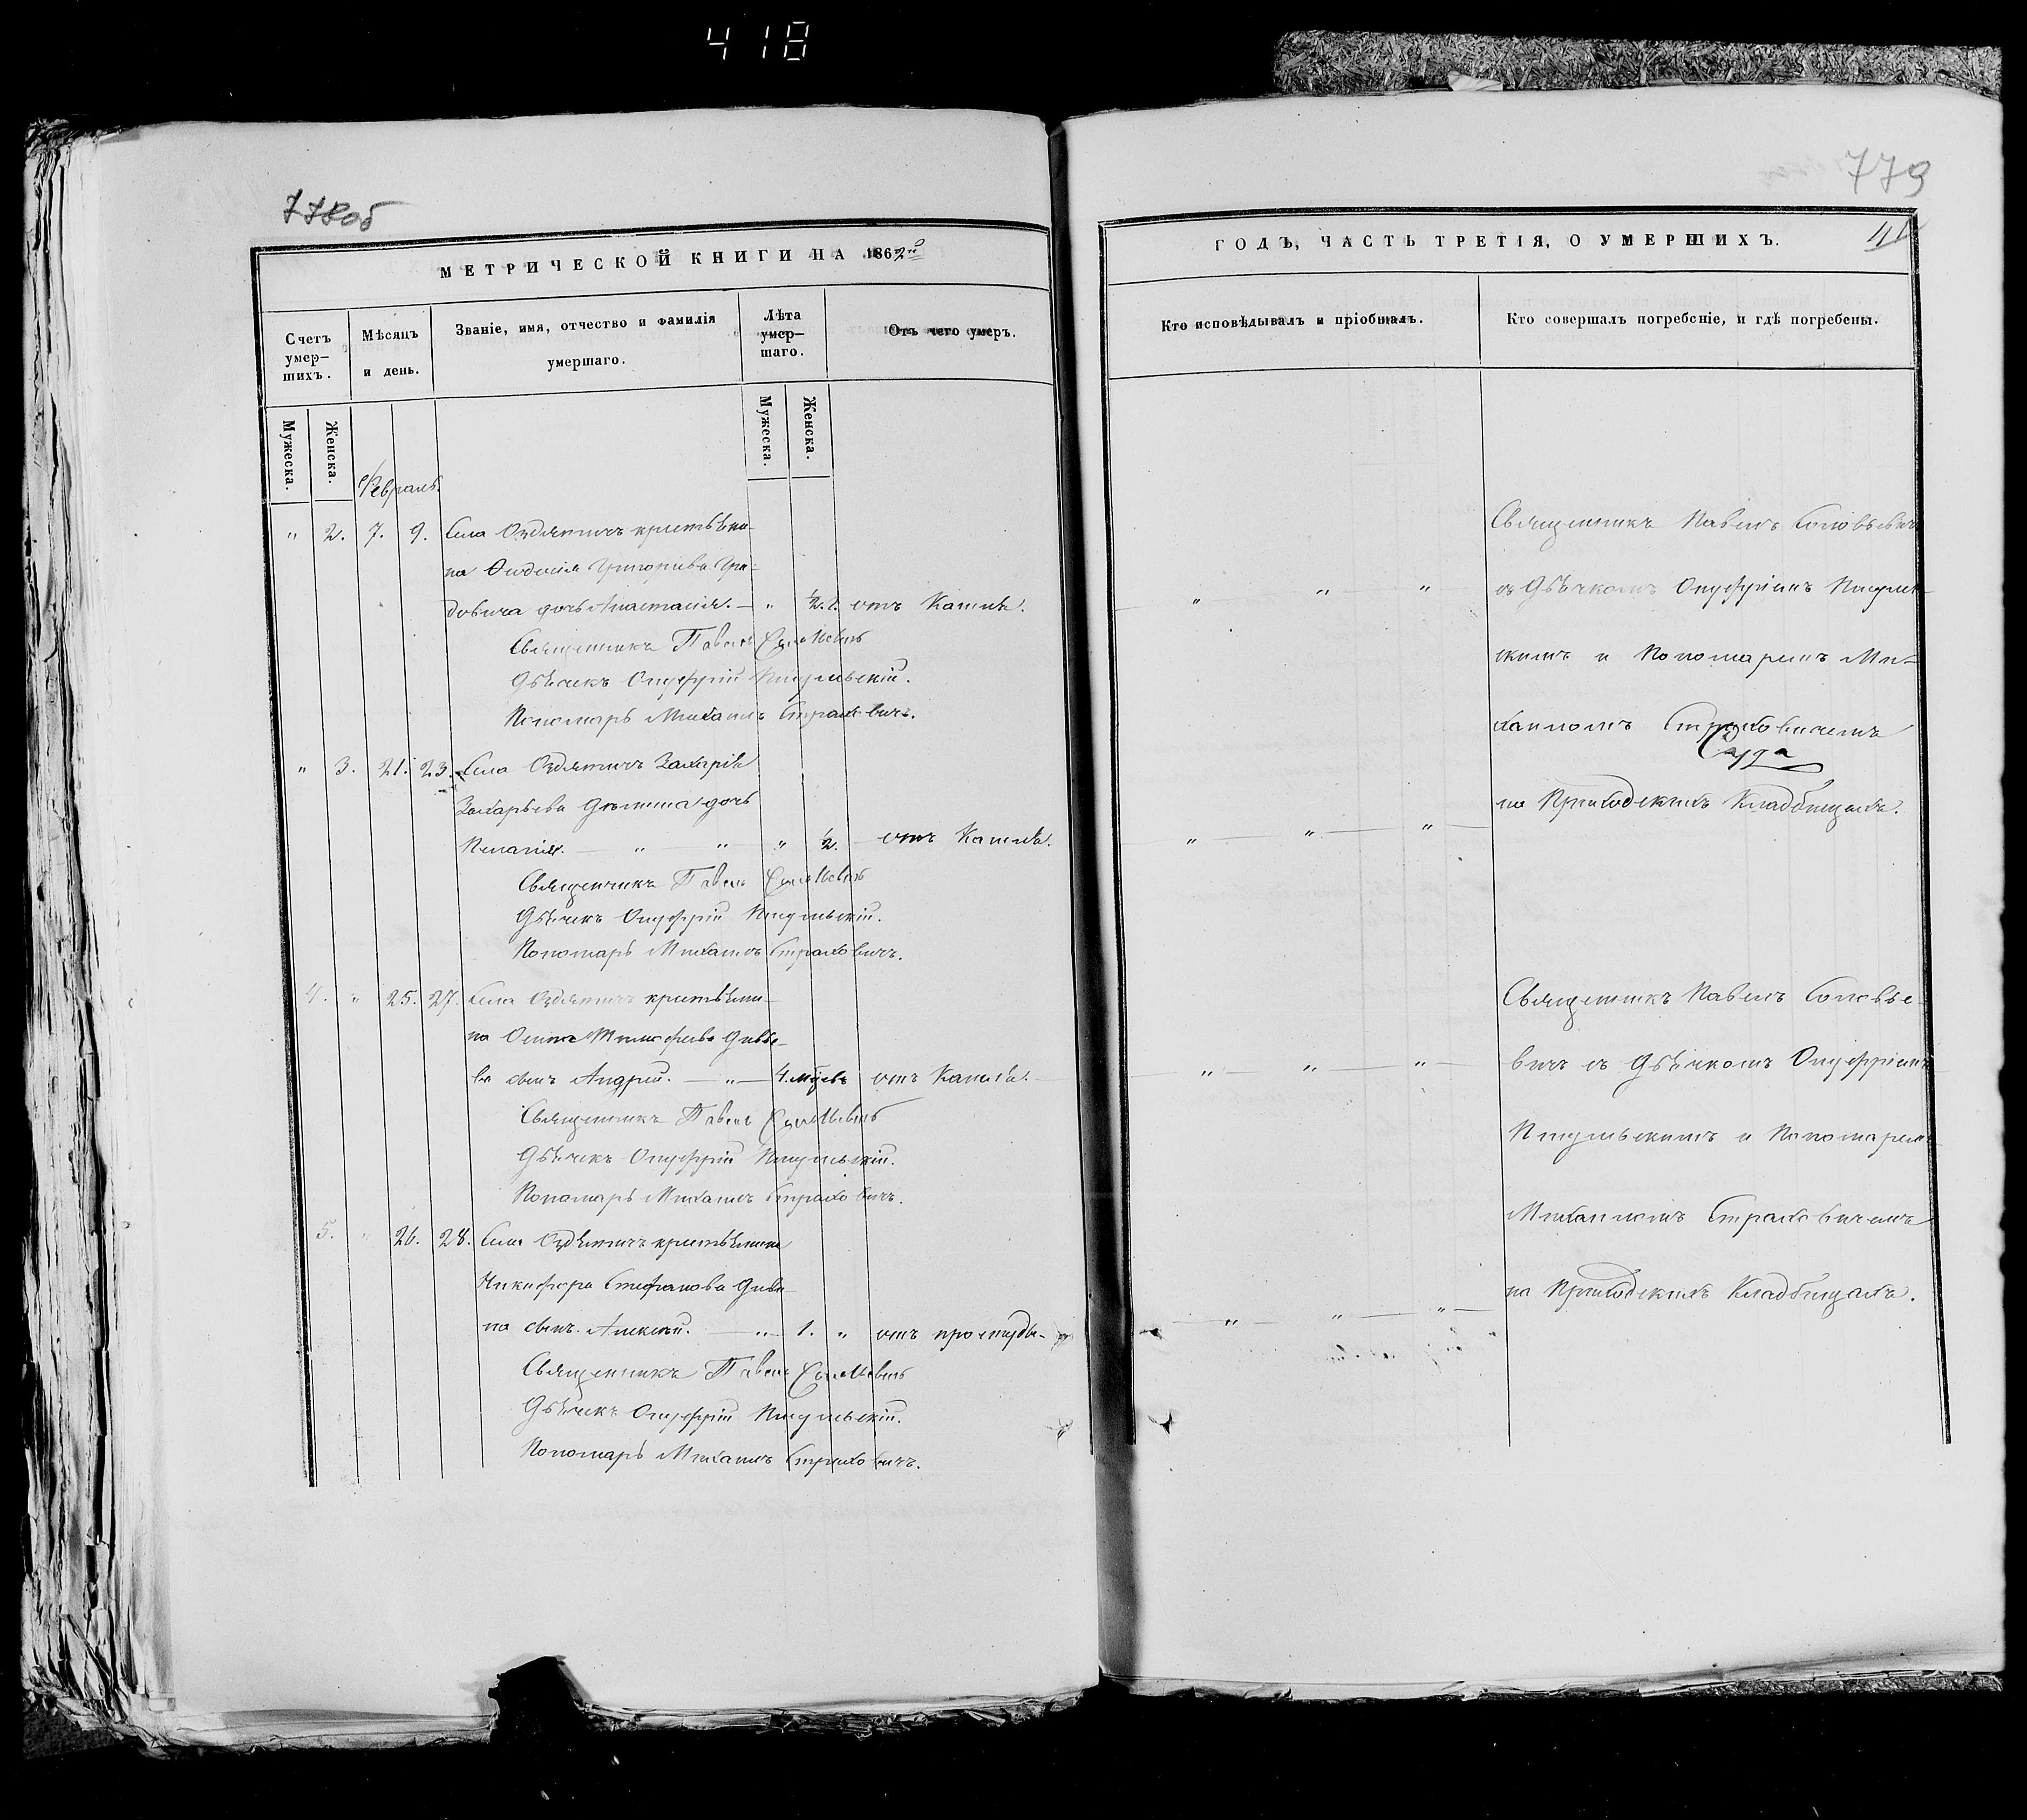 418
778об
МЕТРИЧЕСКОЙ КНИГИ НА 1862й
Счетъ умер-шихъ.
Мѣсяцъ и день.
Званіе, имя, отчество и фамилія умершаго.
Лѣта умер-шаго.
Отъ чего умеръ.
Мужеска.
Женска.
Мужеска.
Женска.
Февраль.
" 2. 7. 9. Села Оздятичъ крестьяни-
на Ѳеодосія Григорьева Гра-
довича дочь Анастасія. — " 2. отъ Кашля.
Священникъ Павелъ Соловьевичъ
Дьячекъ Онуфрій
Пономарь Михаилъ Страховичъ.
" 3. 21. 23. Села Оздятичъ Захарія
Захарьева дочь
Пелагія. — " — " — " ½. отъ Кашля.
Священникъ Павелъ Соловьевичъ
Дьячекъ Онуфрій
Пономарь Михаилъ Страховичъ.
4. " 25. 27. Села Оздятичъ крестьяни-
на Осипа Тимофеева
сынъ Андрей. — " — 4. отъ Кашля.
Священникъ Павелъ Соловьевичъ
Дьячекъ Онуфрій
Пономарь Михаилъ Страховичъ.
5. " 26. 28. Села Оздятичъ крестьянина
Никифора Стефанова
сынъ Алексѣй. — " — 1. " отъ простуды.
Священникъ Павелъ Соловьевичъ
Дьячекъ Онуфрій
Пономарь Михаилъ Страховичъ.
779
ГОДЪ, ЧАСТЬ ТРЕТІЯ, О УМЕРШИХЪ.
41
Кто исповѣдывалъ и пріобщалъ.
Кто совершалъ погребеніе, и гдѣ погребены.
Священникъ Павелъ Соловьевичъ
" — " — " — съ Дьячкомъ Онуфріемъ
и Пономаремъ Ми-
хаиломъ Страховичемъ
на Приходскихъ Кладбищахъ.
" — " — " —
Священникъ Павелъ Соловье-
" — " — " — вичъ съ Дьячкомъ Онуфріемъ
и Пономаремъ
Михаиломъ Страховичемъ
на Приходскихъ Кладбищахъ.
" — " — " —